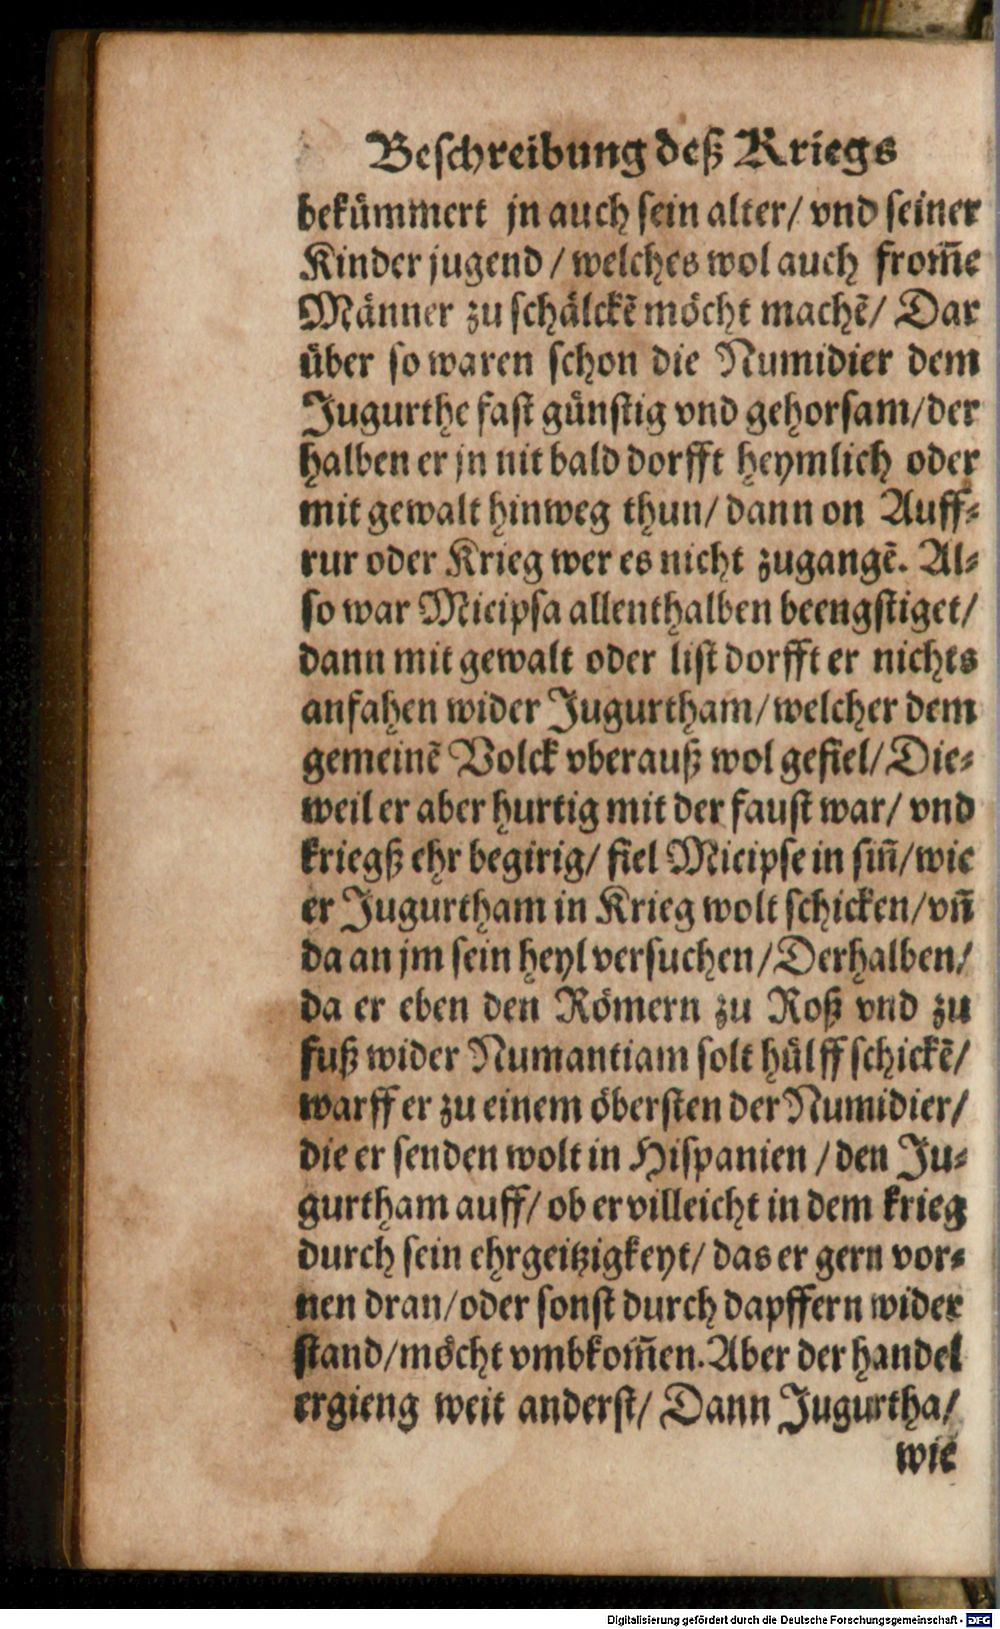 Beschreibung deß Kriegs
bekümmert jn auch sein alter/ vnd seiner
Kinder jugend / welches wol auch from̃e
Männer zu schälckẽ möcht machẽ/ Dar
über so waren schon die Numidier dem
Jugurthe fast günstig vnd gehorsam/der
halben er jn nit bald dorfft heymlich oder
mit gewalt hinweg thun/ dann on Auff-
rur oder Krieg wer es nicht zugangẽ. Al-
so war Micipsa allenthalben beengstiget/
dann mit gewalt oder list dorfft er nichts
anfahen wider Jugurtham/welcher dem
gemeinẽ Volck vberauß wol gefiel/Die-
weil er aber hurtig mit der faust war/ vnd
kriegß ehr begirig/ fiel Micipse in siñ/wie
er Jugurtham in Krieg wolt schicken/vñ
da an jm sein heyl versuchen/Derhalben/
da er eben den Römern zu Roß vnd zu
fuß wider Numantiam solt hülff schickẽ/
warff er zu einem öbersten der Numidier/
die er senden wolt in Hispanien /den Ju-
gurtham auff/ ob er villeicht in dem krieg
durch sein ehrgeitzigkeyt/ das er gern vor-
nen dran/oder sonst durch dapffern wider
stand/möcht vmbkom̃en. Aber der handel
ergieng weit anderst/ Dann Jugurtha/
wie
Digitalisierung gefördert durch die Deutsche Forschungsgemeinschaft - DFG